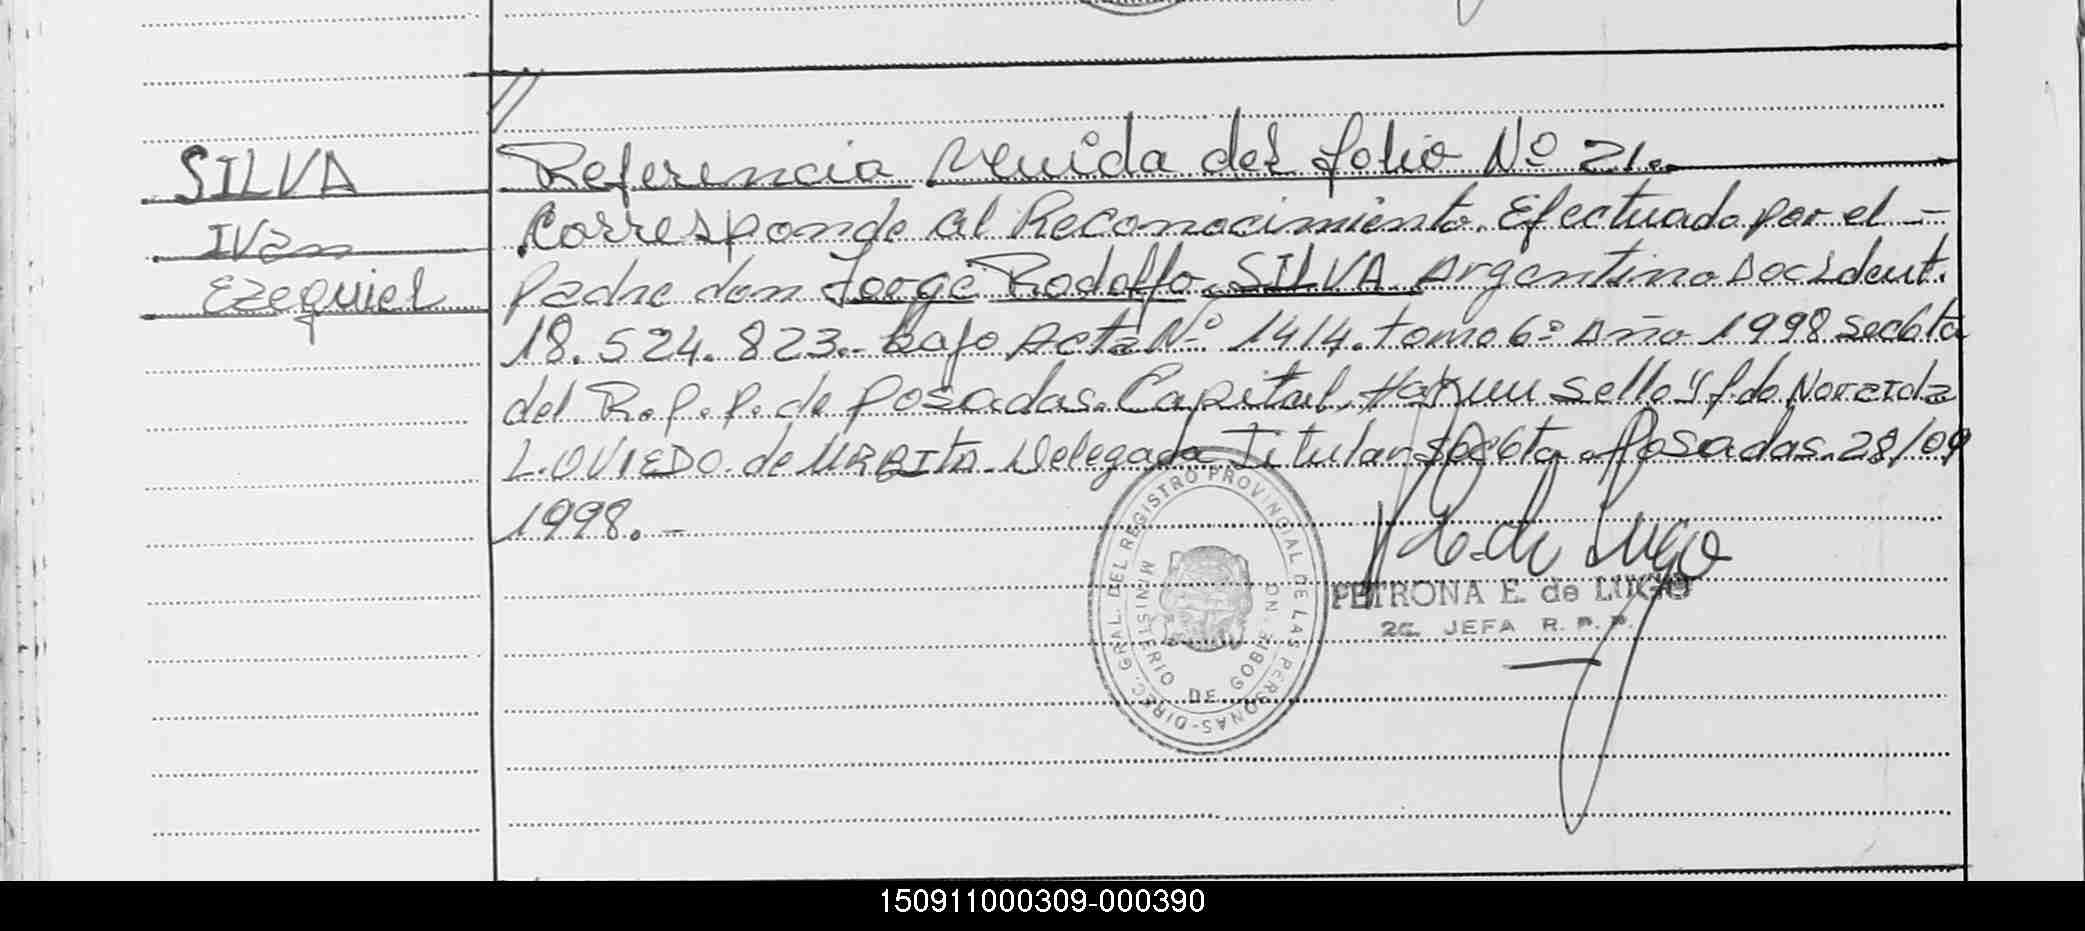 SILVA
Ivan
Ezequiel
Referencia venida del folio Nº 21.
Corresponde al Reconocimiento. Efectuado por el -
padre don Jorge Rodolfo SILVA Argentino Doc Ident.
18.524.823.- bajo Acta Nº 1414. tomo 6º Año 1998 Secc 6ta
del R.P.P. de Posadas. Capital. Hay un sello y fdo Noreida
L. OVIEDO. de URBITA Delegada Titular Secc 6ta. Posadas. 28/09
1998.-
DIREC. GRAL. DEL REGISTRO PROVINCIAL DE LAS PERSONAS-
MINISTERIO DE GOBIERNO
P. E. de Lugo
PETRONA E. de LUGO
2a. JEFA R. P. P.
150911000309-000390